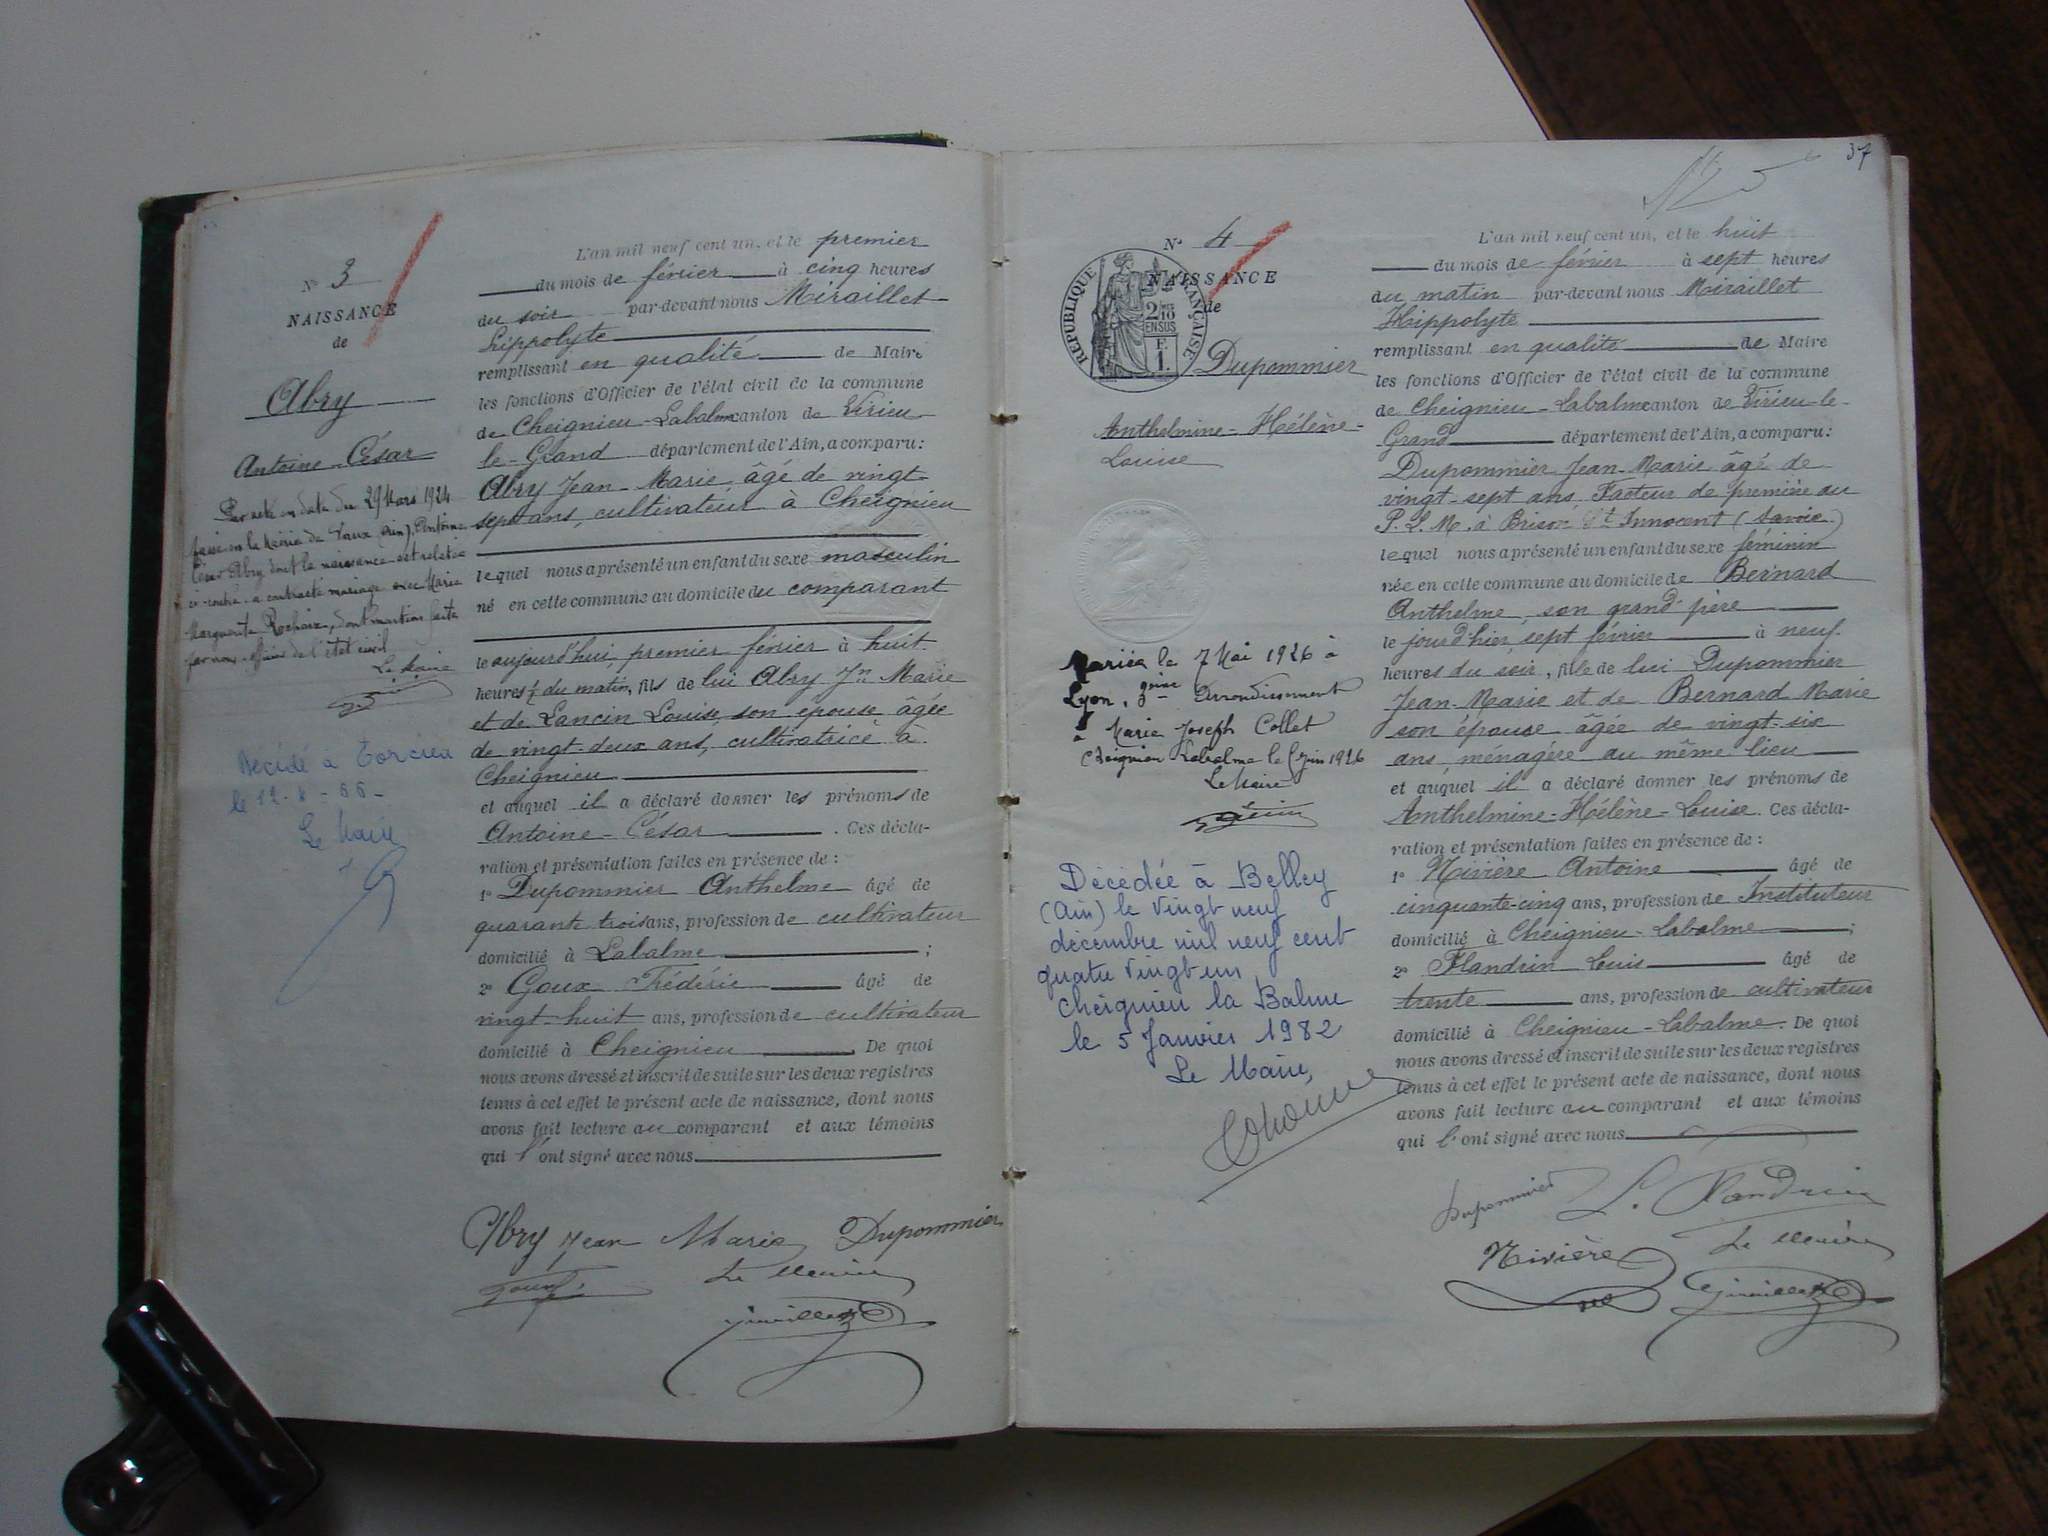 N° 3
NAISSANCE
de
Abry
Antoine-César
Par acte en date du 29 Mars 1924
passé en la Mairie de Vaux (Ain), Antoine
César Abry dont la naissance est relatée
ci-contre a contracté mariage avec Marie
Marguerite Rochaix, dont mention faite
par nous officier de l'état civil
Le Maire
Décédé à Torcieu
le 12-8-66-
Le Maire
L'an mil neuf cent un, et le premier
du mois de février à cinq heures
du soir par-devant nous Miraillet
Hippolyte
remplissant en qualité de Maire
les fonctions d'Officier de l'état civil de la commune
de Cheignieu-Labalme canton de Virieu-
le-Grand département de l'Ain, a comparu :
Abry Jean-Marie âgé de vingt-
sept ans, cultivateur à Cheignieu
lequel nous a présenté un enfant du sexe masculin
né en cette commune au domicile du comparant
le aujourd'hui, premier février à huit
heures ½ du matin, fils de lui Abry Jn Marie
et de Lancin Louise, son épouse âgée
de vingt-deux ans, cultivatrice à
Cheignieu
et auquel il a déclaré donner les prénoms de
Antoine-César . Ces décla-
ration et présentation faites en présence de :
1° Dupommier Anthelme âgé de
quarante trois ans, profession de cultivateur
domicilié à Labalme ;
2° Goux Frédéric âgé de
vingt-huit ans, profession de cultivateur
domicilié à Cheignieu . De quoi
nous avons dressé et inscrit de suite sur les deux registres
tenus à cet effet le présent acte de naissance, dont nous
avons fait lecture au comparant et aux témoins
qui l'ont signé avec nous
Abry Jean Marie Dupommier
Goux Le Maire
Miraillet
37
N° 4
NAISSANCE
de
RÉPUBLIQUE FRANÇAISE
2/10
EN SUS
F.
1.
Dupommier
Anthelmine-Hélène-
Louise
Mariée le 7 Mai 1926 à
Lyon, 3ème Arrondissement
à Marie Joseph Collet
Cheignieu Labalme le 5 juin 1926
Le Maire
Décédée à Belley
(Ain) le vingt neuf
décembre mil neuf cent
quatre vingt un
Cheignieu la Balme
le 5 Janvier 1982
Le Maire,
L'an mil neuf cent un, et le huit
du mois de février à sept heures
du matin par-devant nous Miraillet
Hippolyte
remplissant en qualité de Maire
les fonctions d'Officier de l'état civil de la commune
de Cheignieu-Labalme canton de Virieu-le-
Grand département de l'Ain, a comparu :
Dupommier Jean-Marie âgé de
vingt-sept ans, Facteur de première au
P.L.M. à Brison St Innocent (Savoie)
lequel nous a présenté un enfant du sexe féminin
née en cette commune au domicile de Bernard
Anthelme, son grand-père
le jourd'hier, sept février à neuf
heures du soir, fille de lui Dupommier
Jean-Marie et de Bernard Marie
son épouse âgée de vingt-six
ans, ménagère au même lieu
et auquel il a déclaré donner les prénoms de
Anthelmine-Hélène-Louise. Ces décla-
ration et présentation faites en présence de :
1° Nivière Antoine âgé de
cinquante-cinq ans, profession de Instituteur
domicilié à Cheignieu-Labalme ;
2° Flandrin Louis âgé de
trente ans, profession de cultivateur
domicilié à Cheignieu-Labalme. De quoi
nous avons dressé et inscrit de suite sur les deux registres
tenus à cet effet le présent acte de naissance, dont nous
avons fait lecture au comparant et aux témoins
qui l'ont signé avec nous
Dupommier L. Flandrin
Nivière Le Maire
Miraillet